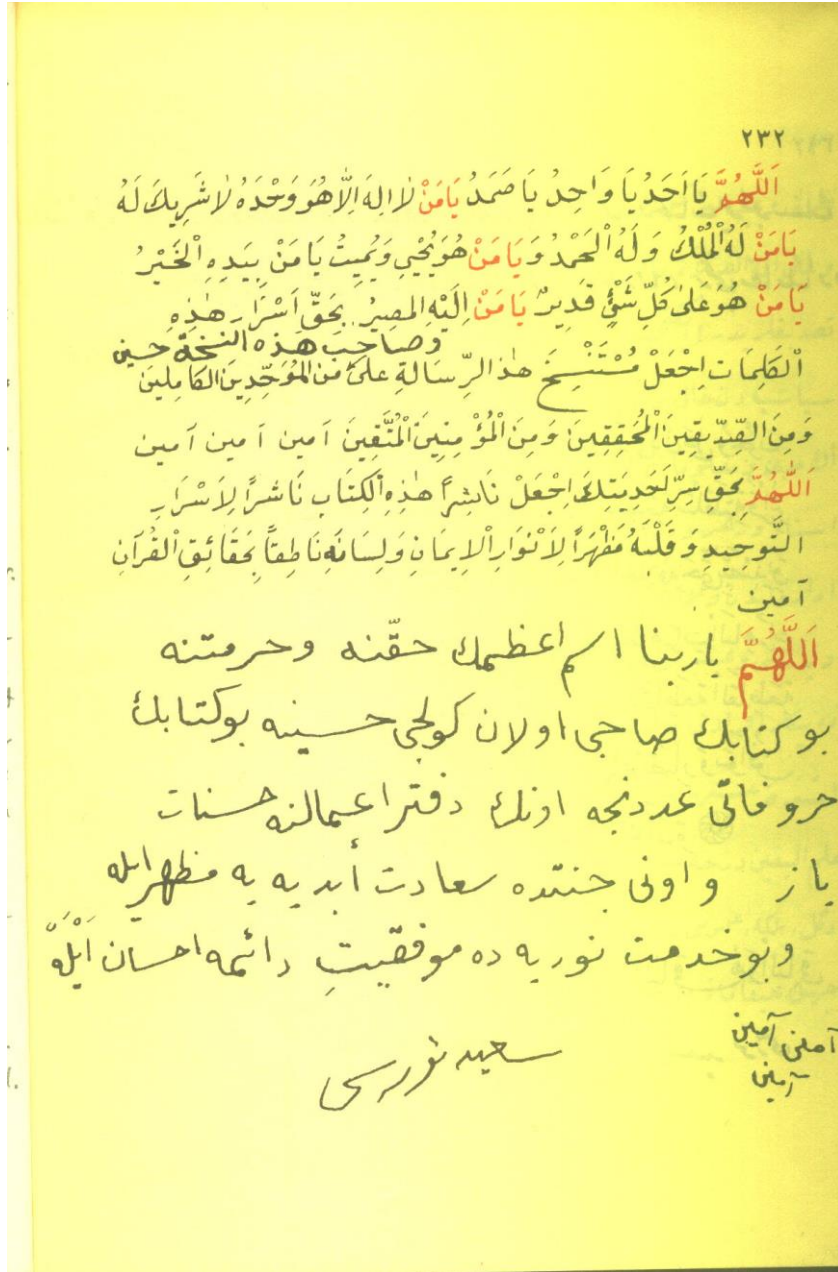 ٢٣٢
اَللَّهُمَّ يَا اَحَدُ يَا وَاحِدُ يَا صَمَدُ يَا مَنْ لَا اِلٰهَ اِلَّا هُوَ وَحْدَهُ لَا شَرِيكَ لَهُ
يَا مَنْ لَهُ الْمُلْكُ وَ لَهُ الْحَمْدُ وَ يَا مَنْ هُوَ يُحْيِي وَ يُمِيتُ يَا مَنْ بِيَدِهِ الْخَيْرُ
يَا مَنْ هُوَ عَلٰى كُلِّ شَيْئٍ قَدِيرٌ يَا مَنْ اِلَيْهِ الْمَصِيرُ بِحَقِّ اَسْرَارِ هٰذِهِ
وصاحب هذه النسخة حسين
اْلكَلِمَاتِ اِجْعَلْ مُسْتَنْسِخَ هٰذَا الرِّسَالَةِ على مِنَ الْمُوَحِّدِينَ الْكَامِلِينَ
وَمِنَ الصِّدِّيقِينَ الْمُحَقِّقِينَ وَمِنَ الْمُؤْمِنِينَ الْمُتَّقِينَ آمين آمين آمين
اَللّٰهُمَّ بِحَقِّ سِرِّ اَحَدِيَتِكَ اِجْعَلْ نَاشِراً هٰذِهِ الْكِتَابِ نَاشِرًا لِاَسْرَارِ
التَّوحِيدِ وَ قَلْبَهُ مَظْهَرًا لِاَنْوَارِ الْاِيمَانِ وَ لِسَانَهُ نَاطِقاً بِحَقَائِقِ الْقُرْآنِ
آمين
اَللَّهُمَّ ياربنا اسم اعظمك حقّنه وحرمتنه
بو كتابك صاحبى اولان كولجى حسينه بو كتابك
حروفاتى عددنجه اونك دفتر اعمالنه حسنات
ياز و اونى جنتده سعادت أبديه يه مظهر ايله
وبو خدمت نوريه ده موفقيتِ دائمه احسان اَيْلَهَ
آمين آمين
آمين
سعيد نورسى